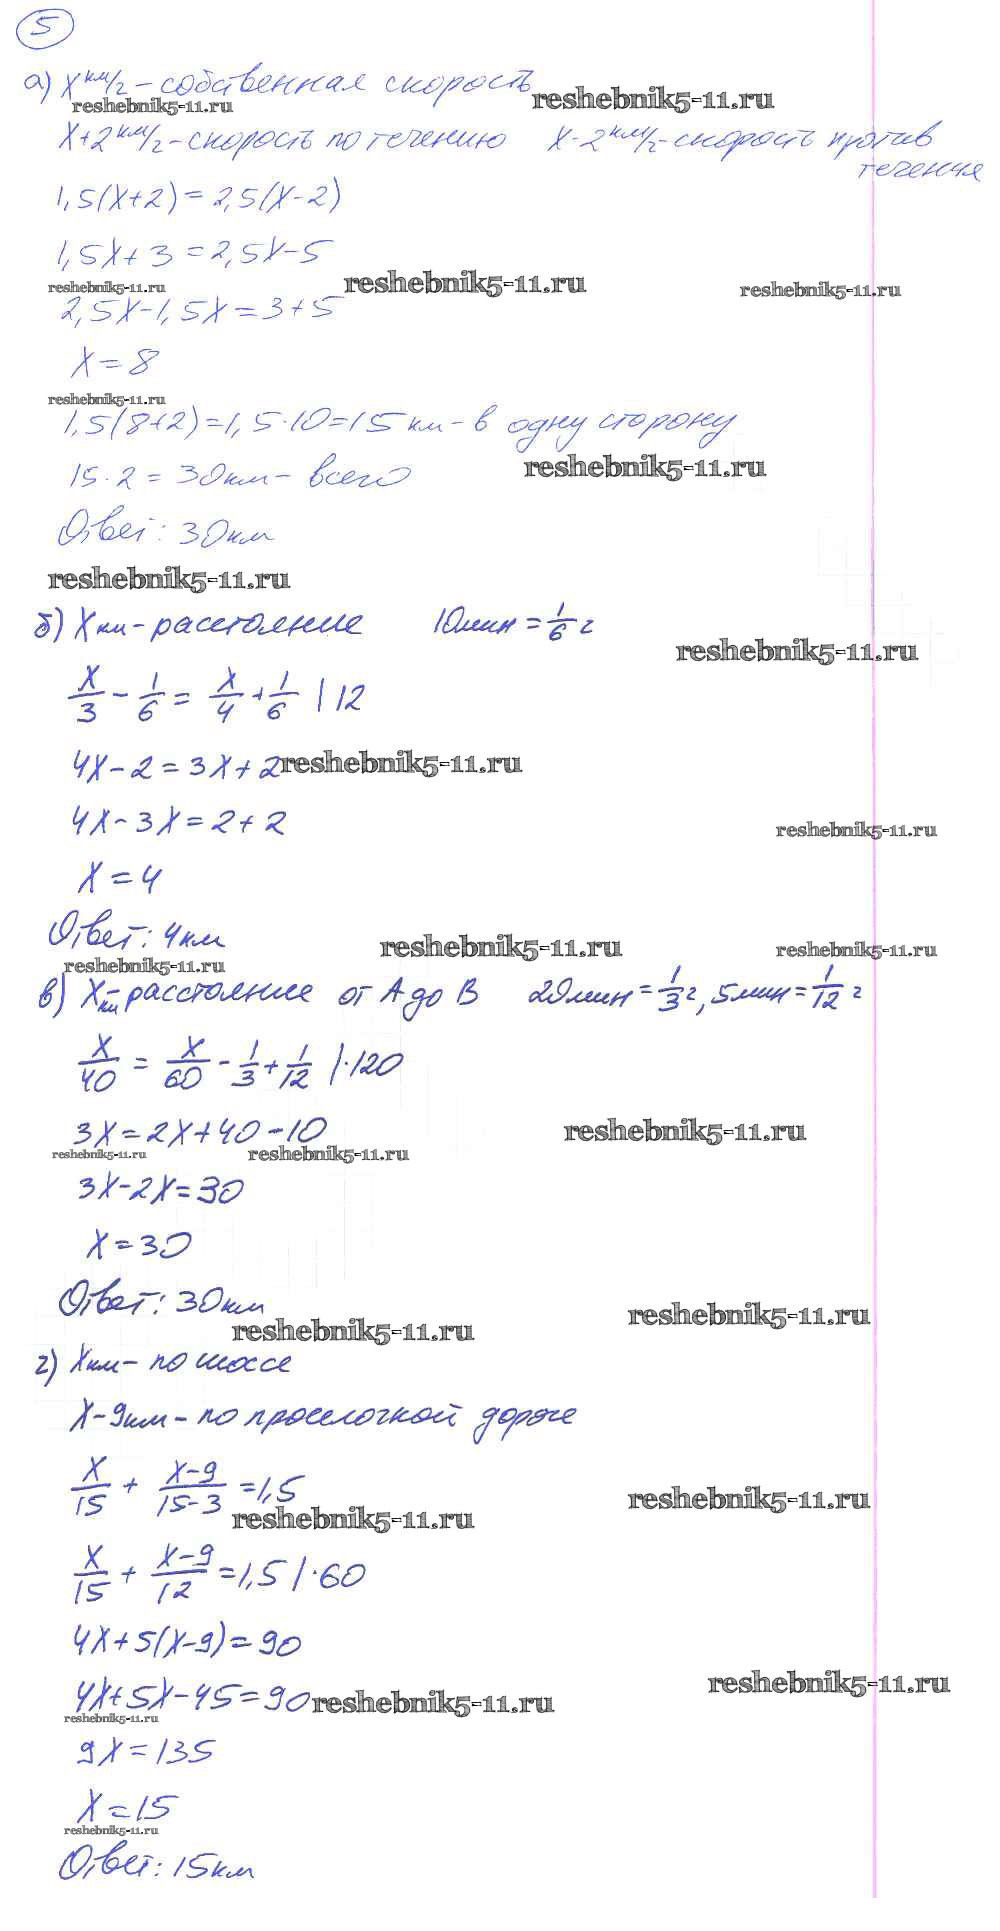 5
а) x км/г - собственная скорость
reshebnik5-11.ru reshebnik5-11.ru
x+2 км/г - скорость по течению x-2 км/г - скорость против
течения
1,5(x+2)=2,5(x-2)
1,5x+3=2,5x-5
reshebnik5-11.ru reshebnik5-11.ru reshebnik5-11.ru
2,5x-1,5x=3+5
x=8
reshebnik5-11.ru
1,5(8+2)=1,5·10=15 км - в одну сторону
reshebnik5-11.ru
15·2=30 км - всего
Ответ: 30 км
reshebnik5-11.ru
б) x км - расстояние 10 мин = 1/6 г
reshebnik5-11.ru
x/3 - 1/6 = x/4 + 1/6 | 12
4x-2=3x+2
reshebnik5-11.ru
4x-3x=2+2
reshebnik5-11.ru
x=4
Ответ: 4 км
reshebnik5-11.ru reshebnik5-11.ru reshebnik5-11.ru
в) x км - расстояние от А до В 20 мин = 1/3 г, 5 мин = 1/12 г
x/40 = x/60 - 1/3 + 1/12 | ·120
3x=2x+40-10
reshebnik5-11.ru
reshebnik5-11.ru reshebnik5-11.ru
3x-2x=30
x=30
Ответ: 30 км
reshebnik5-11.ru reshebnik5-11.ru
г) x км - по шоссе
x-9 км - по проселочной дороге
x/15 + x-9/15-3 = 1,5
reshebnik5-11.ru reshebnik5-11.ru
x/15 + x-9/12 = 1,5 | ·60
4x+5(x-9)=90
4x+5x-45=90
reshebnik5-11.ru reshebnik5-11.ru
reshebnik5-11.ru
9x=135
x=15
reshebnik5-11.ru
Ответ: 15 км